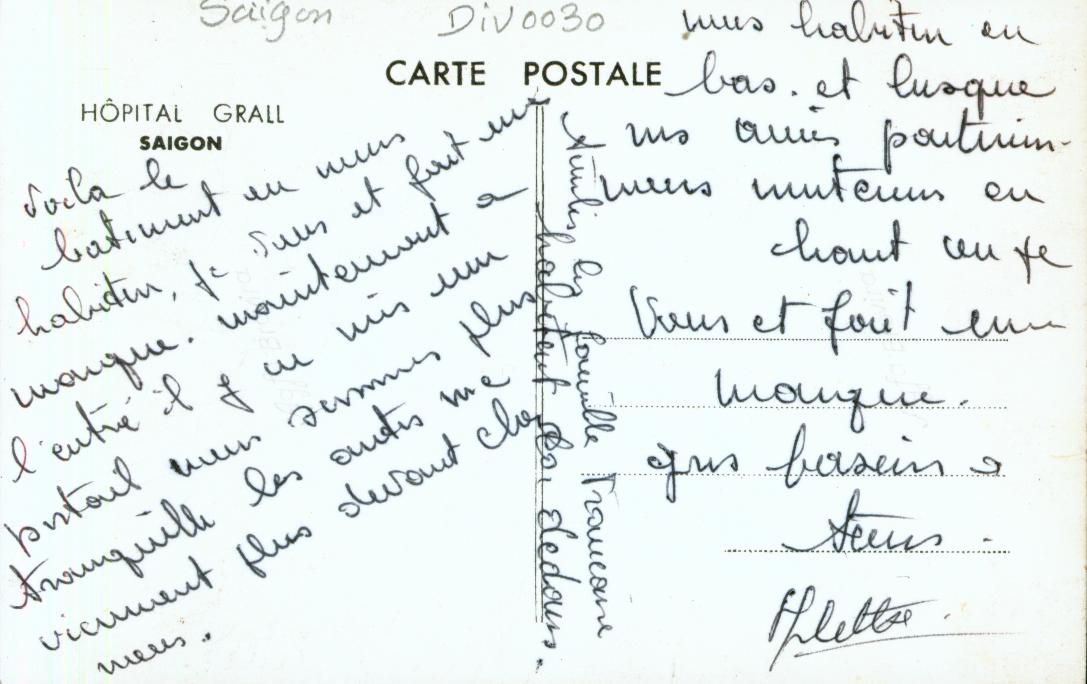 Saigon
DIV0030
CARTE POSTALE
HÔPITAL GRALL
SAIGON
Voila le
batiment ou nous
habiton, je vous et fait une
manque. maintenant a
l'entré il y on mis un
portail nous sommes plus
tranquille les autres ne
viennent plus devant chez
nous.
Toutes les famille Francaise
habitent la dedans.
nous habiton en
bas. et lusque
nos amis partirons
nous monterons en
haut ou je
vous et fait une
manque.
gros baseiis a
tous.
Arlette